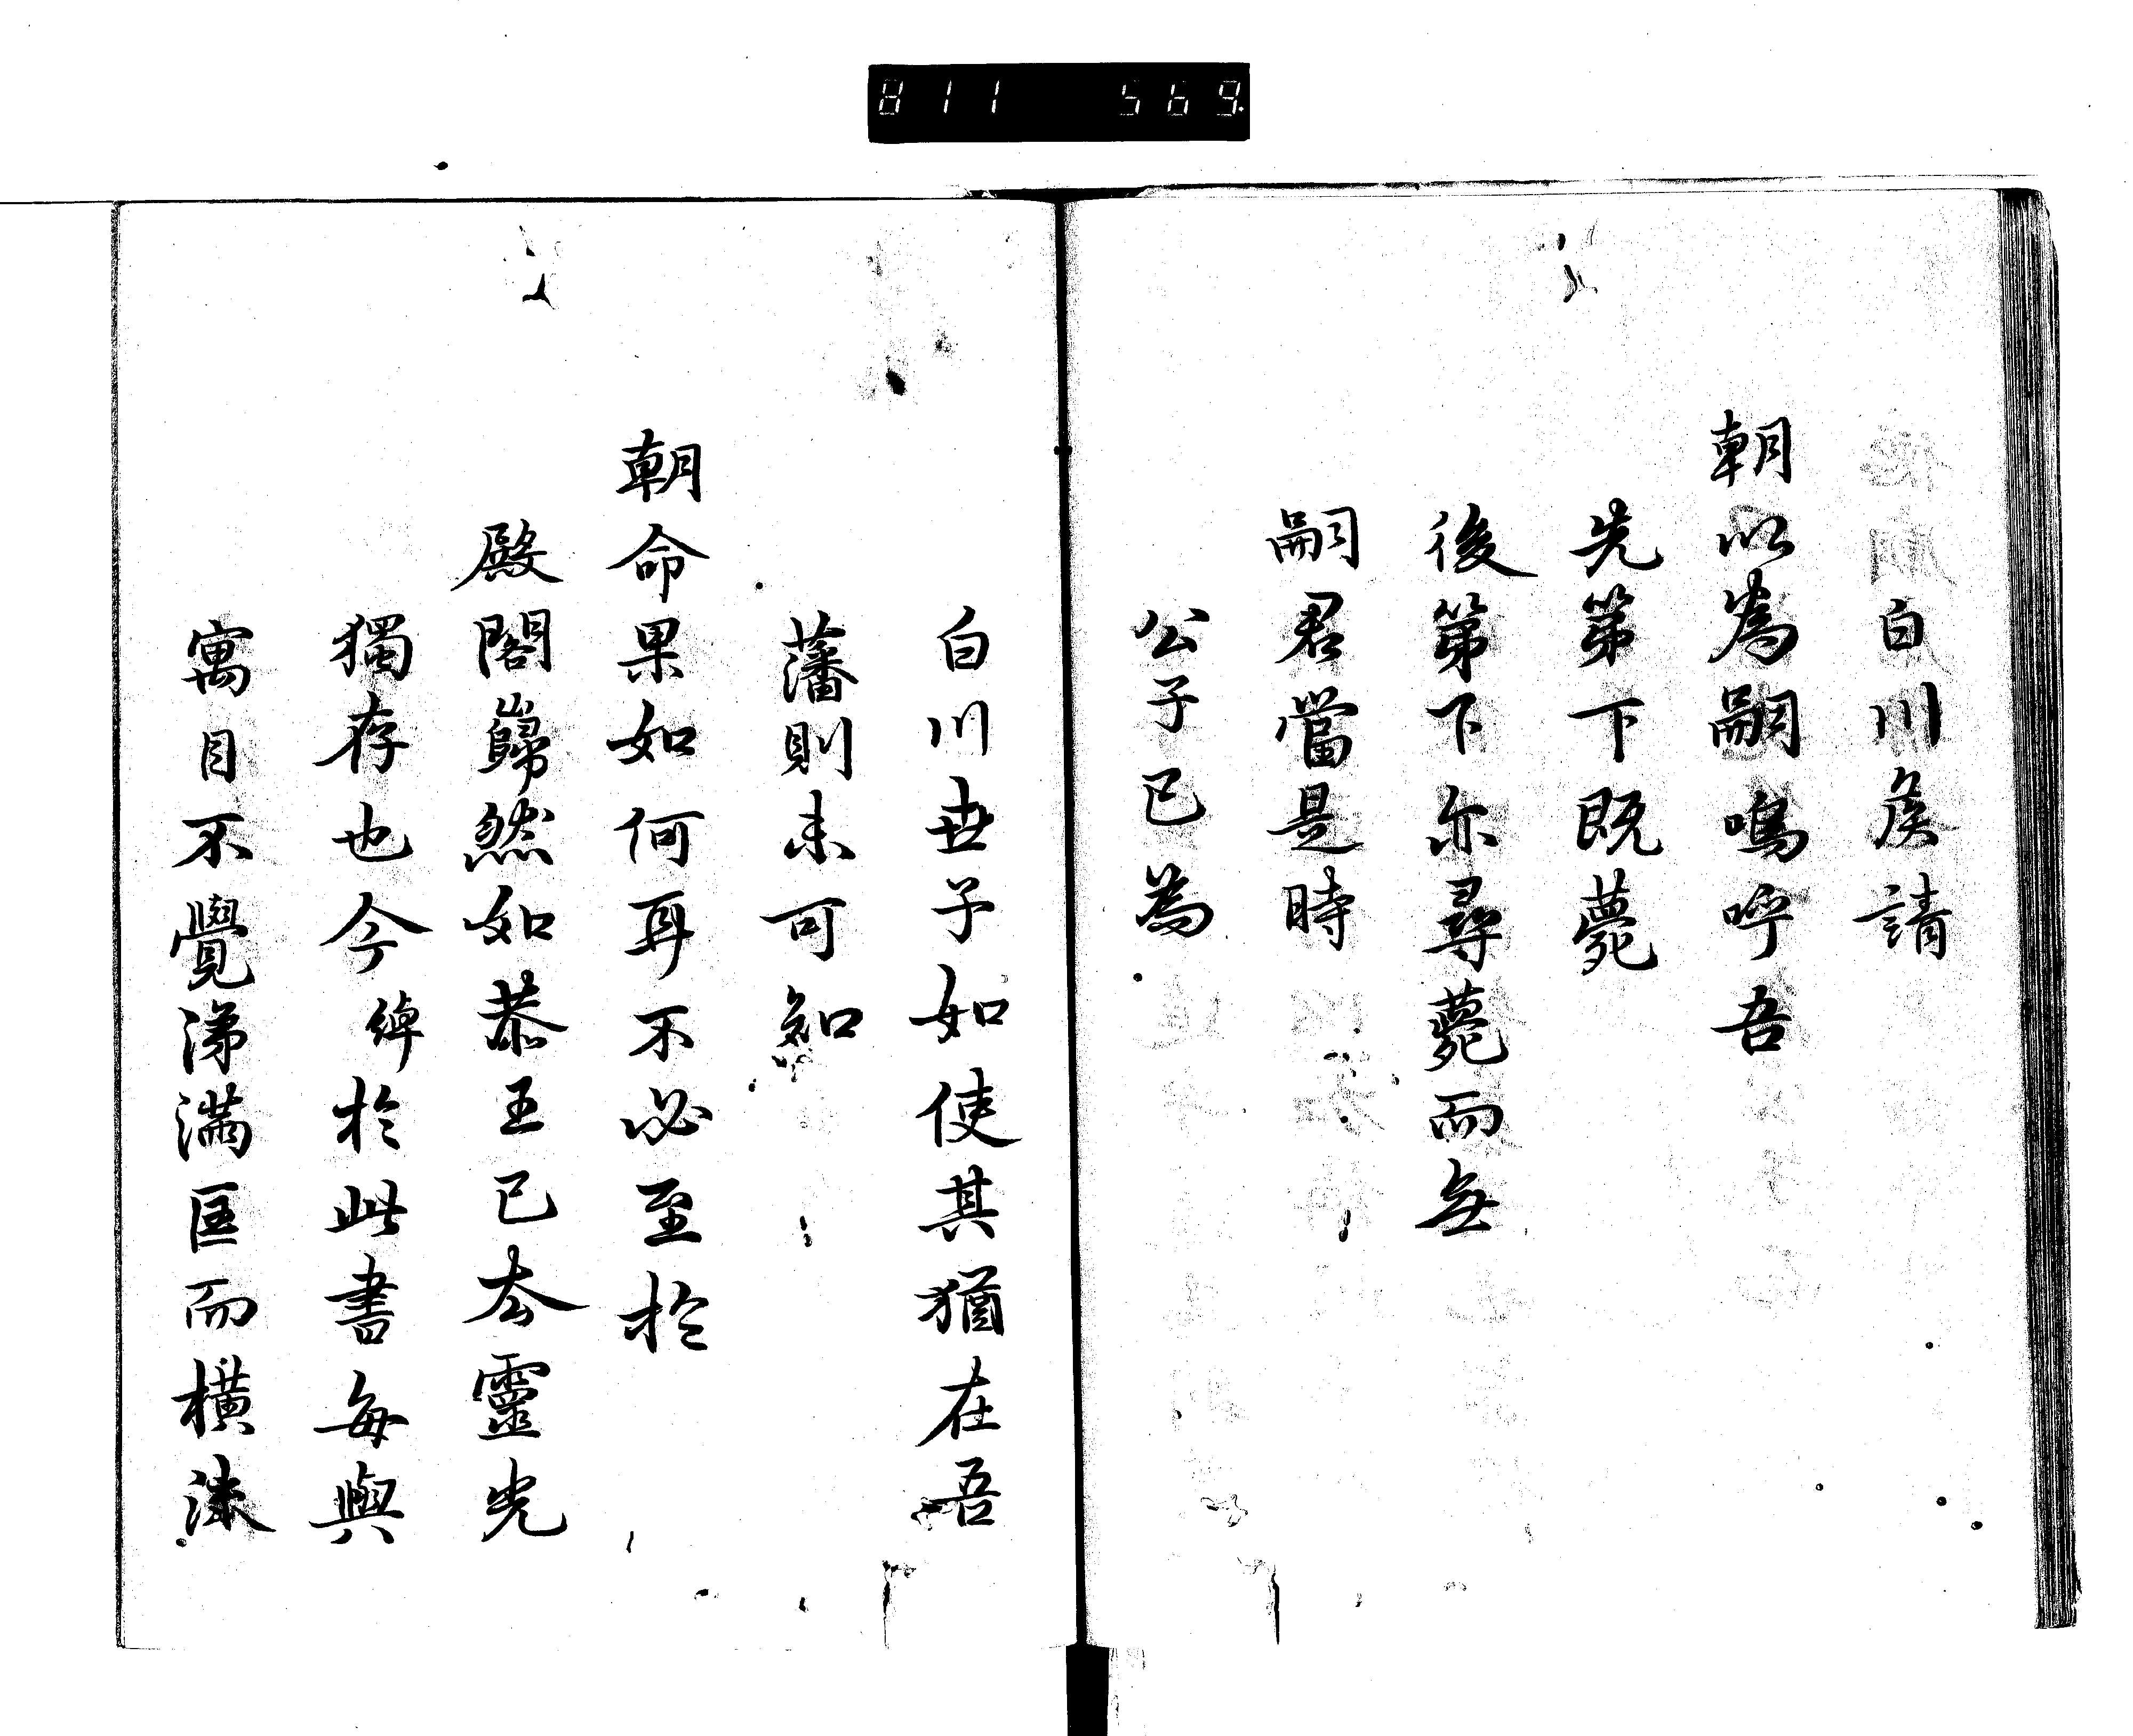 811 569
白川矦請
朝以為嗣嗚呼吾
先第下既薨
後第下尓尋薨而無
嗣君當是時
公子已為
白川世子如使其猶在吾
藩則未可知
朝命果如何耳不必至於
殿閣巋然如恭王已去靈光
獨存也今於此書每與
寓目不覺涕滿匡而橫